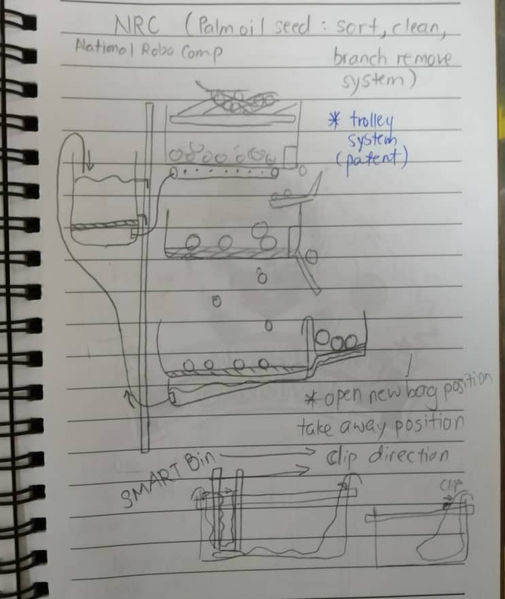 NRC (Palm oil seed : sort, clean,
National Robo Comp
branch remove
system)
* trolley
system
(patent)
* open new bag position
take away position
SMART Bin
Clip direction
Clip